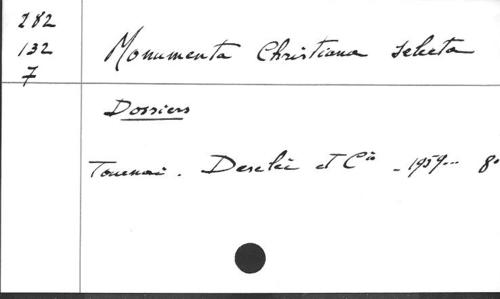 282
132
7
Monumenta Christiana selecta
Dossiers
Tournai. Desclée et Cie - 1959... 8°